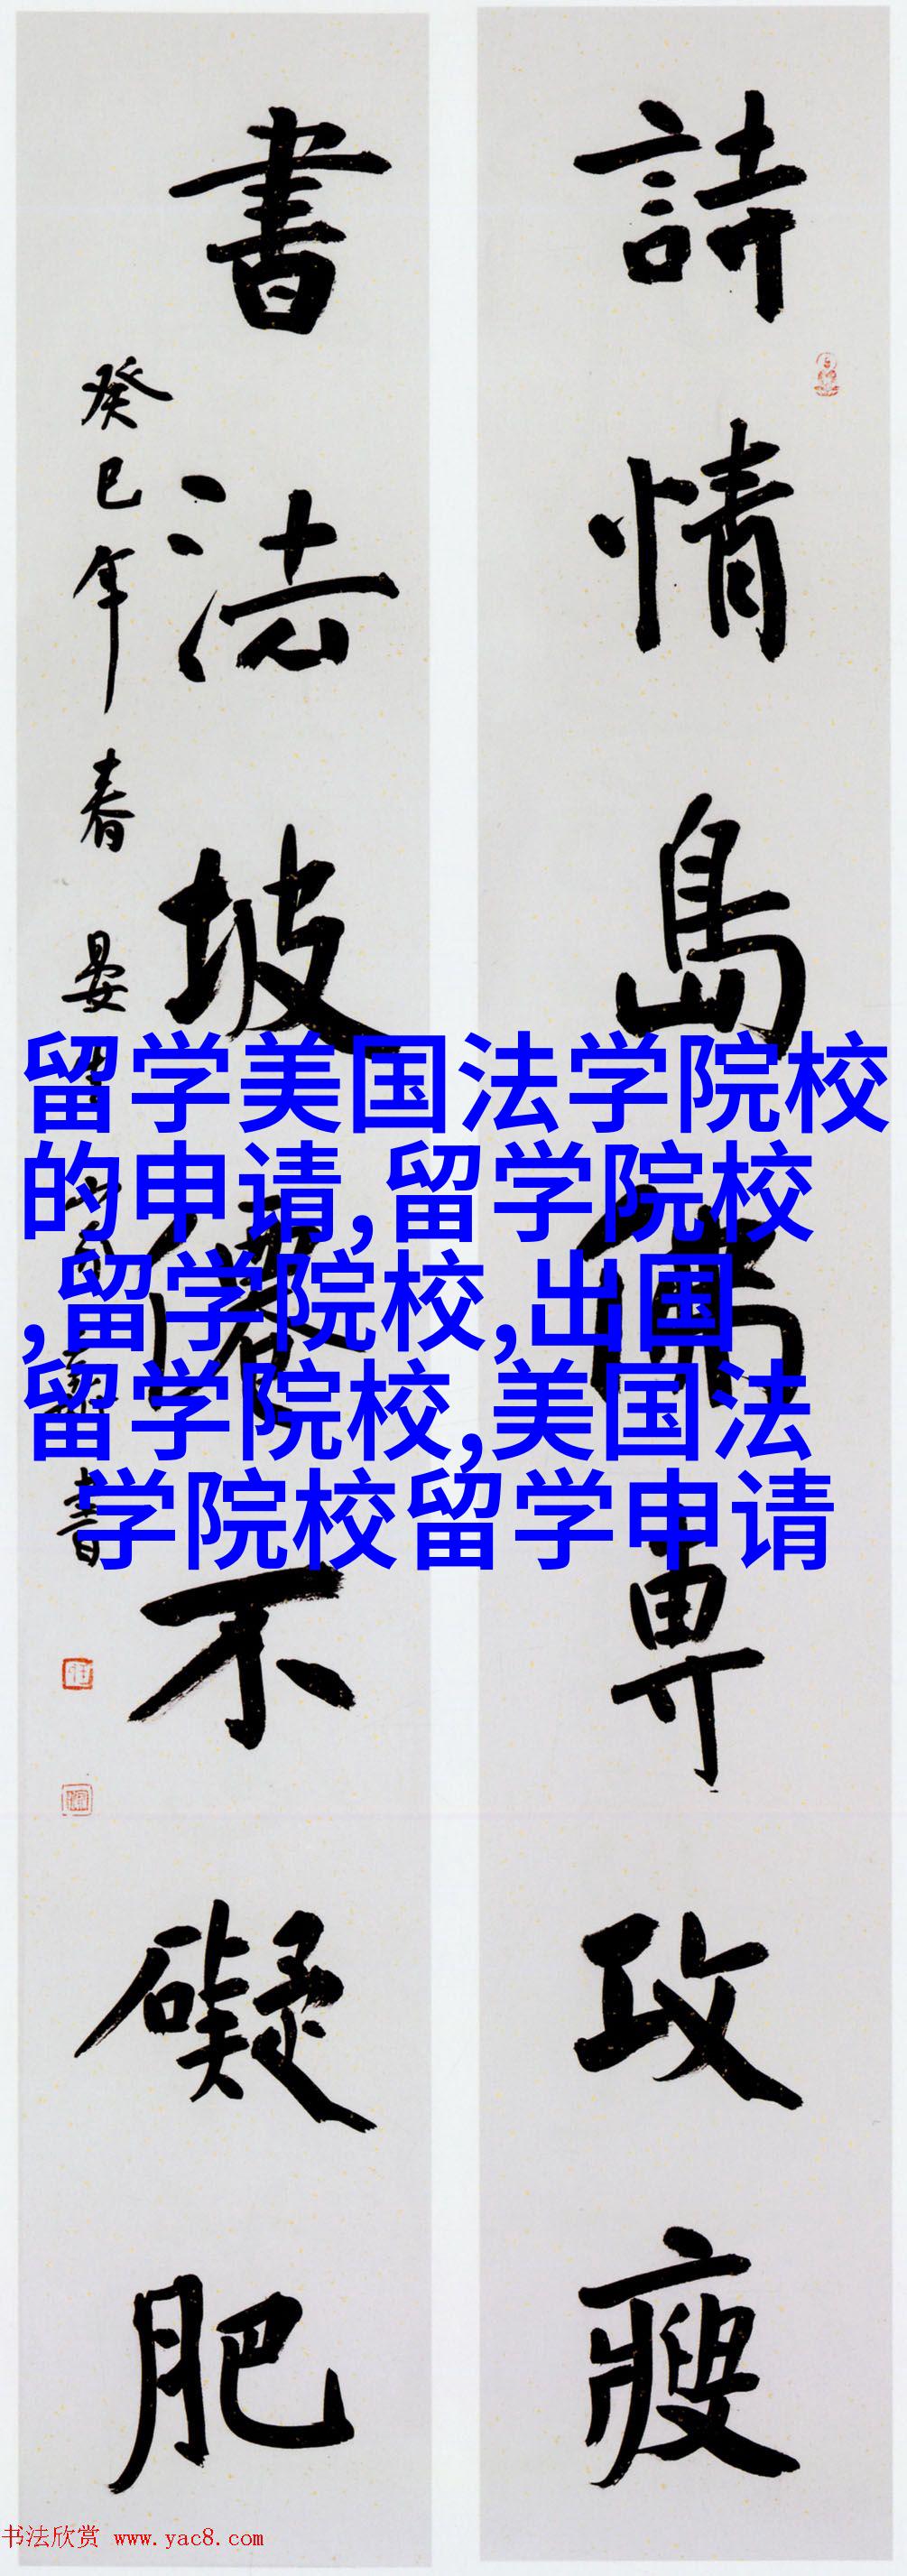 詩情島佛專攻瘦
書法坡僊不礙肥
癸巳年春晏
書
留学美国法学院校
的申请,留学院校
,留学院校,出国
留学院校,美国法
学院校留学申请
书法欣赏 www.yac8.com